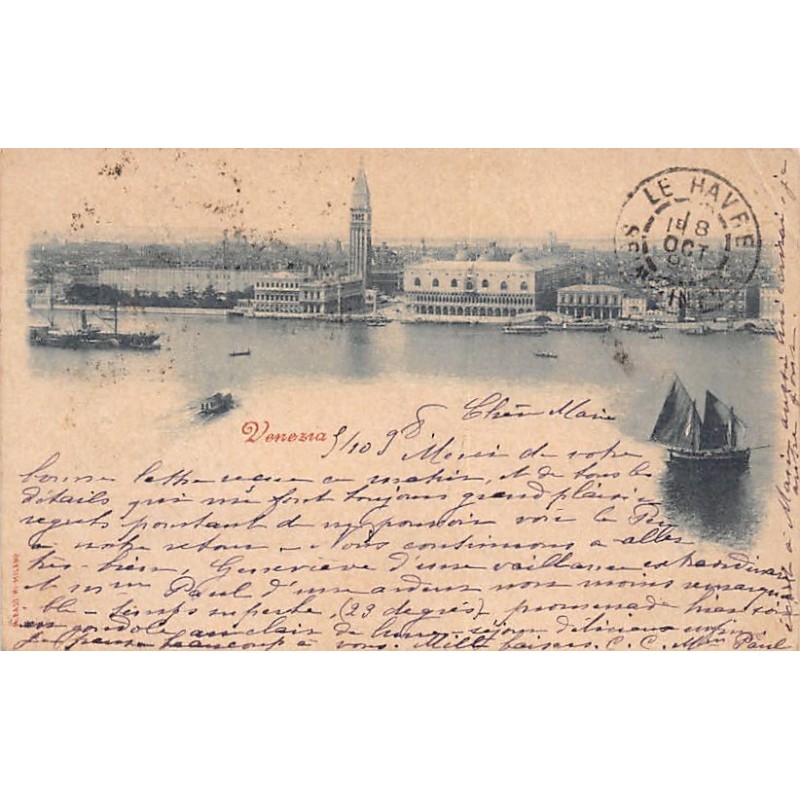 LE HAVRE
18
OCT
Venezia 5/10 98 Chère Marie
Merci de votre
bonne lettre reçue ce matin, et de tous les
détails qui me font toujours grand plaisir
regrets pourtant de ne pouvoir voir le
à notre retour - Nous continuons à aller
très bien, Geneviève d'une vaillance extraordinaire
et Paul d'une ardeur non moins remarqua
ble - temps superbe, (23 degrés) promenade hier soir
en gondole au clair de lune, séjour délicieux enfin
Je pense beaucoup à vous. Mille baisers. C. C. Paul
MILANO